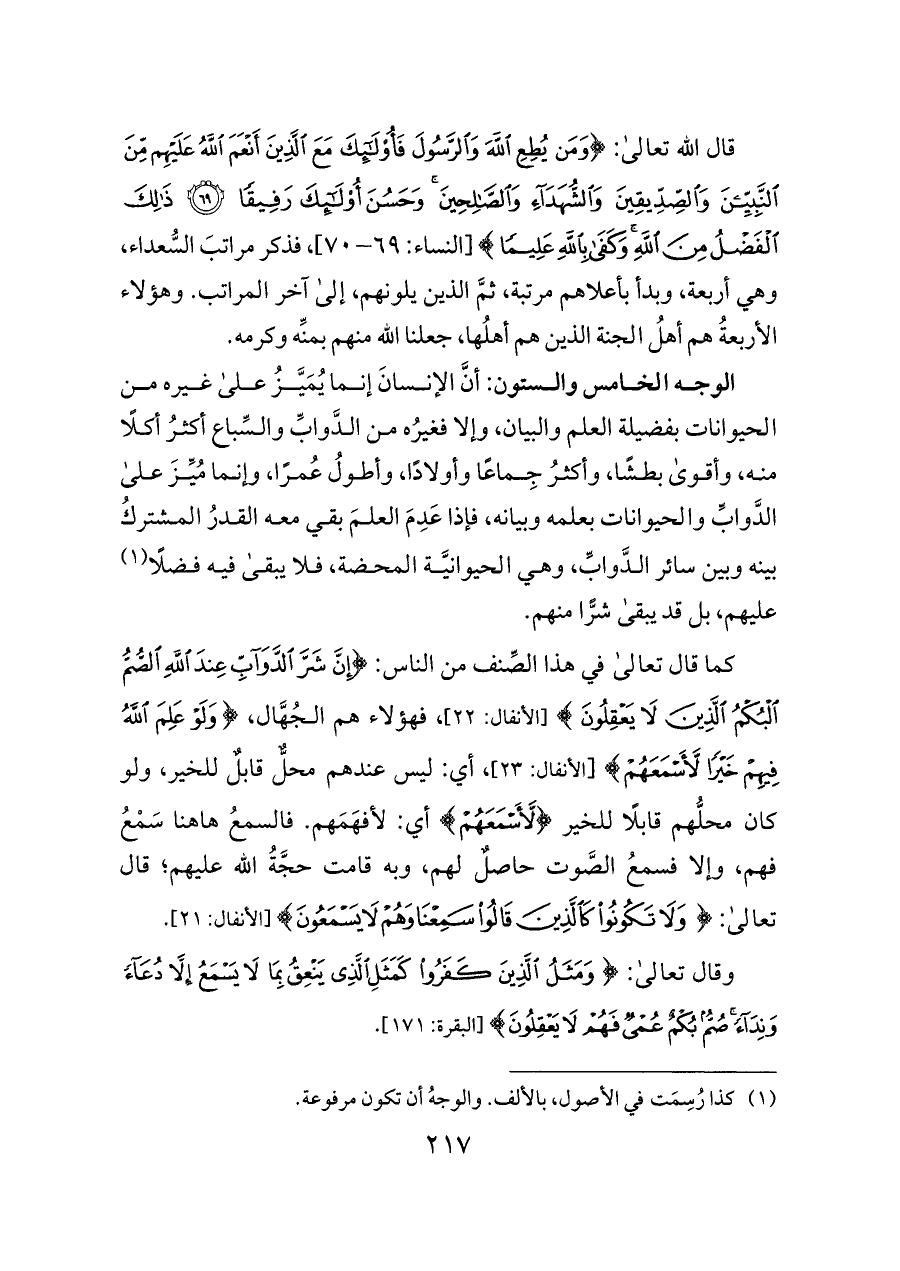 قال الله تعالىٰ: ﴿وَمَن يُطِعِ ٱللَّهَ وَٱلرَّسُولَ فَأُو۟لَـٰٓئِكَ مَعَ ٱلَّذِينَ أَنْعَمَ ٱللَّهُ عَلَيْهِم مِّنَ
ٱلنَّبِيِّـۧنَ وَٱلصِّدِّيقِينَ وَٱلشُّهَدَآءِ وَٱلصَّـٰلِحِينَ ۚ وَحَسُنَ أُو۟لَـٰٓئِكَ رَفِيقًا ۝٦٩ ذَٰلِكَ
ٱلْفَضْلُ مِنَ ٱللَّهِ ۚ وَكَفَىٰ بِٱللَّهِ عَلِيمًا﴾ [النساء: ٦٩ - ٧٠]، فذكر مراتبَ السُّعداء،
وهي أربعة، وبدأ بأعلاهم مرتبة، ثمَّ الذين يلونهم، إلىٰ آخر المراتب. وهؤلاء
الأربعةُ هم أهلُ الجنة الذين هم أهلُها، جعلنا الله منهم بمنِّه وكرمه.
الوجه الخامس والستون: أنَّ الإنسانَ إنما يُمَيَّزُ علىٰ غيره من
الحيوانات بفضيلة العلم والبيان، وإلا فغيرُه من الدَّوابِّ والسِّباع أكثرُ أكلًا
منه، وأقوىٰ بطشًا، وأكثرُ جِماعًا وأولادًا، وأطولُ عُمرًا، وإنما مُيِّزَ علىٰ
الدَّوابِّ والحيوانات بعلمه وبيانه، فإذا عَدِمَ العلمَ بقي معه القدرُ المشتركُ
بينه وبين سائر الدَّوابِّ، وهي الحيوانيَّة المحضة، فلا يبقىٰ فيه فضلًا(١)
عليهم، بل قد يبقىٰ شرًّا منهم.
كما قال تعالىٰ في هذا الصِّنف من الناس: ﴿إِنَّ شَرَّ ٱلدَّوَآبِّ عِندَ ٱللَّهِ ٱلصُّمُّ
ٱلْبُكْمُ ٱلَّذِينَ لَا يَعْقِلُونَ﴾ [الأنفال: ٢٢]، فهؤلاء هم الجُهَّال، ﴿وَلَوْ عَلِمَ ٱللَّهُ
فِيهِمْ خَيْرًا لَّأَسْمَعَهُمْ﴾ [الأنفال: ٢٣]، أي: ليس عندهم محلٌّ قابلٌ للخير، ولو
كان محلُّهم قابلًا للخير ﴿لَّأَسْمَعَهُمْ﴾ أي: لأفهَمَهم. فالسمعُ هاهنا سَمْعُ
فهم، وإلا فسمعُ الصَّوت حاصلٌ لهم، وبه قامت حجَّةُ الله عليهم؛ قال
تعالىٰ: ﴿وَلَا تَكُونُوا۟ كَٱلَّذِينَ قَالُوا۟ سَمِعْنَا وَهُمْ لَا يَسْمَعُونَ﴾ [الأنفال: ٢١].
وقال تعالىٰ: ﴿وَمَثَلُ ٱلَّذِينَ كَفَرُوا۟ كَمَثَلِ ٱلَّذِى يَنْعِقُ بِمَا لَا يَسْمَعُ إِلَّا دُعَآءً
وَنِدَآءً ۚ صُمٌّۢ بُكْمٌ عُمْىٌ فَهُمْ لَا يَعْقِلُونَ﴾ [البقرة: ١٧١].
(١) كذا رُسِمَت في الأصول، بالألف. والوجهُ أن تكون مرفوعة.
٢١٧